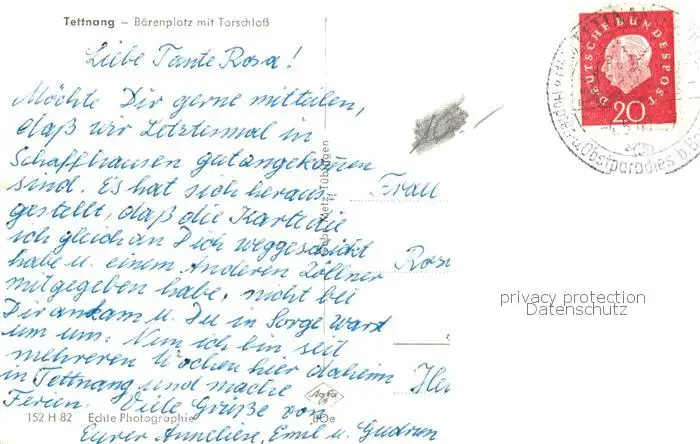 Tettnang – Bärenplatz mit Torschloß
Liebe Tante Rosa!
Möchte Dir gerne mitteilen,
daß wir Letztesmal in
Schaffhausen gutangekommen
sind. Es hat sich heraus-
gestellt, daß die Karte die
ich gleich an Dich weggeschickt
habe u. einem Anderen Zöllner
mitgegeben habe, nicht bei
Dir ankam u. Du in Sorge warst
um uns. Nun ich bin seit
mehreren Wochen hier daheim
in Tettnang und mache
Ferien. Viele Grüße von
Eurer Anneliese, Emil u. Gudrun
152 H 82 Echte Photographie
Gebr. Metz, Tübingen
Frau
Rosa
DEUTSCHE BUNDESPOST
20
Obstparadies
privacy protection
Datenschutz